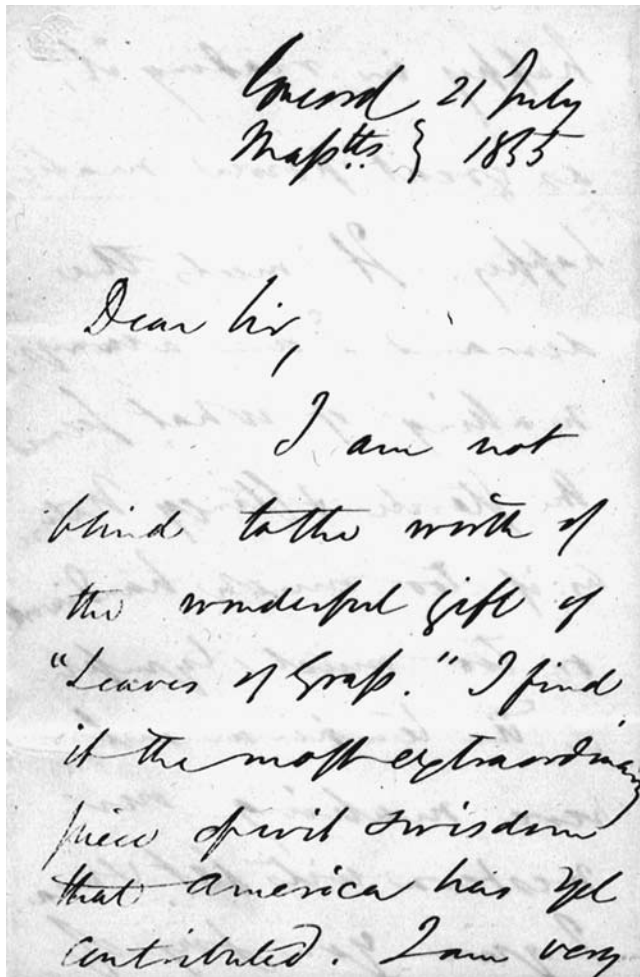 Concord 21 July
Masstts. } 1855
Dear Sir,
I am not
blind to the worth of
the wonderful gift of
"Leaves of Grass." I find
it the most extraordinary
piece of wit & wisdom
that America has yet
contributed. I am very